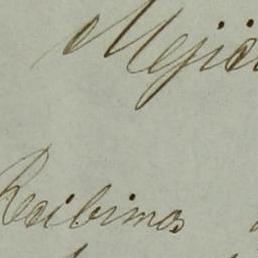 Mejic
Recibimos